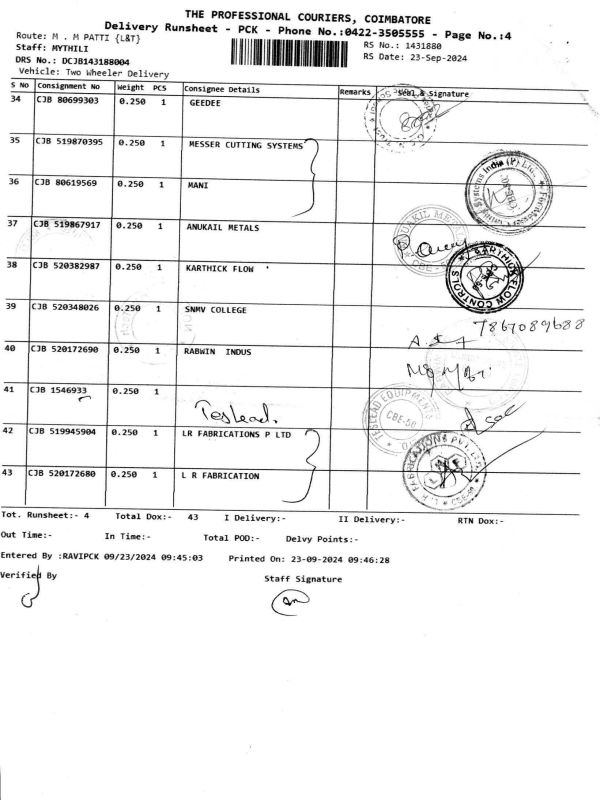 THE PROFESSIONAL COURIERS, COIMBATORE
Delivery Runsheet - PCK - Phone No.:0422-3505555 - Page No.:4
Route: M . M PATTI {L&T}
RS No.: 1431880
Staff: MYTHILI
RS Date: 23-Sep-2024
DRS No.: DCJB143188004
Vehicle: Two Wheeler Delivery
S No Consignment No Weight PCS Consignee Details Remarks Seal & Signature
34 CJB 80699303 0.250 1 GEEDEE
35 CJB 519870395 0.250 1 MESSER CUTTING SYSTEMS
36 CJB 80619569 0.250 1 MANI
37 CJB 519867917 0.250 1 ANUKAIL METALS
38 CJB 520382987 0.250 1 KARTHICK FLOW '
KARTHICK FLOW CONTROLS
39 CJB 520348026 0.250 1 SNMV COLLEGE
7867089688
40 CJB 520172690 0.250 1 RABWIN INDUS
41 CJB 1546933 0.250 1 Teslead.
TESLEAD EQUIPMENTS
CBE-50
42 CJB 519945904 0.250 1 LR FABRICATIONS P LTD
43 CJB 520172680 0.250 1 L R FABRICATION
Tot. Runsheet:- 4 Total Dox:- 43 I Delivery:- II Delivery:- RTN Dox:-
Out Time:- In Time:- Total POD:- Delvy Points:-
Entered By :RAVIPCK 09/23/2024 09:45:03 Printed On: 23-09-2024 09:46:28
Verified By Staff Signature